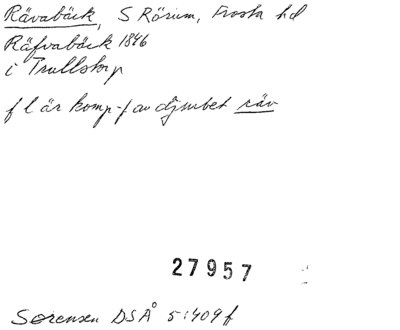 Rävabäck, S Rörum, Frosta hd
Räfvabäck 1846
i Trullstorp
f l är komp-f av djurbet räv
27957
Sørensen DSÅ 5:409f